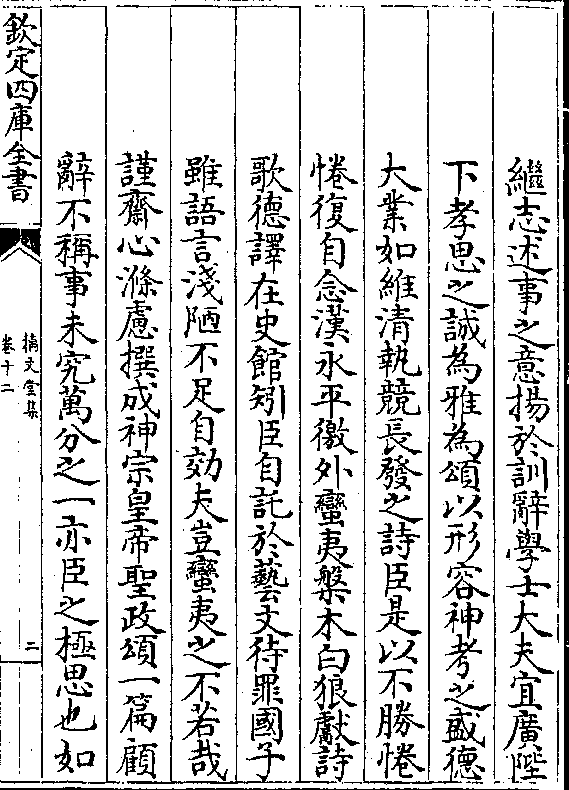 繼志述事之意揚於訓辭學士大夫宜廣陛
下孝思之誠為雅為頌以形容神考之盛德
大業如維清執競長發之詩臣是以不勝惓
惓復自念漢永平徼外蠻夷槃木白狼獻詩
歌德譯在史館矧臣自託於藝文待罪國子
雖語言淺陋不足自効夫豈蠻夷之不若哉
謹齋心滌慮撰成神宗皇帝聖政頌一篇顧
辭不稱事未究萬分之一亦臣之極思也如
欽定四庫全書
摛文堂集
卷十二
二